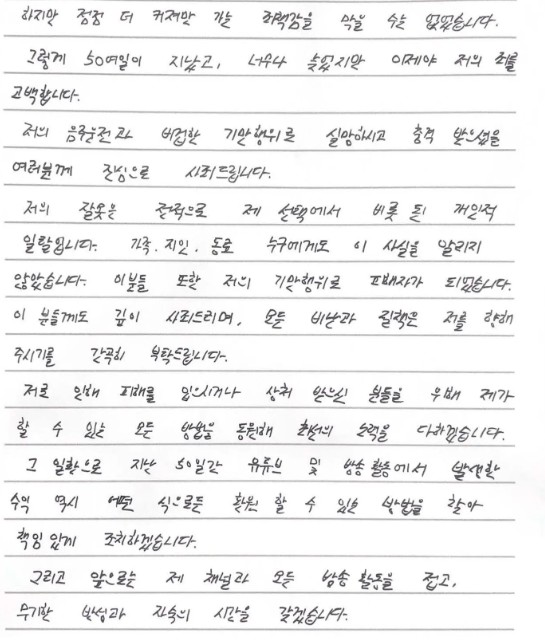 하지만 점점 더 커져만 가는 죄책감을 막을 수는 없었습니다.
그렇게 50여일이 지났고, 너무나 늦었지만 이제야 저의 죄를
고백합니다.
저의 음주운전과 비겁한 기만행위로 실망하시고 충격 받으셨을
여러분께 진심으로 사죄드립니다.
저의 잘못은 전적으로 제 선택에서 비롯 된 개인적
일탈입니다. 가족, 지인, 동료 누구에게도 이 사실을 알리지
않았습니다. 이분들 또한 저의 기만행위로 피해자가 되었습니다.
이 분들께도 깊이 사죄드리며, 모든 비난과 질책은 저를 향해
주시기를 간곡히 부탁드립니다.
저로 인해 피해를 입으시거나 상처 받으신 분들을 위해 제가
할 수 있는 모든 방법을 동원해 최선의 노력을 다하겠습니다.
그 일환으로 지난 50일간 유튜브 및 방송 활동에서 발생한
수익 역시 어떤 식으로든 환원 할 수 있는 방법을 찾아
책임 있게 조치하겠습니다.
그리고 앞으로는 제 채널과 모든 방송 활동을 접고,
무기한 반성과 자숙의 시간을 갖겠습니다.